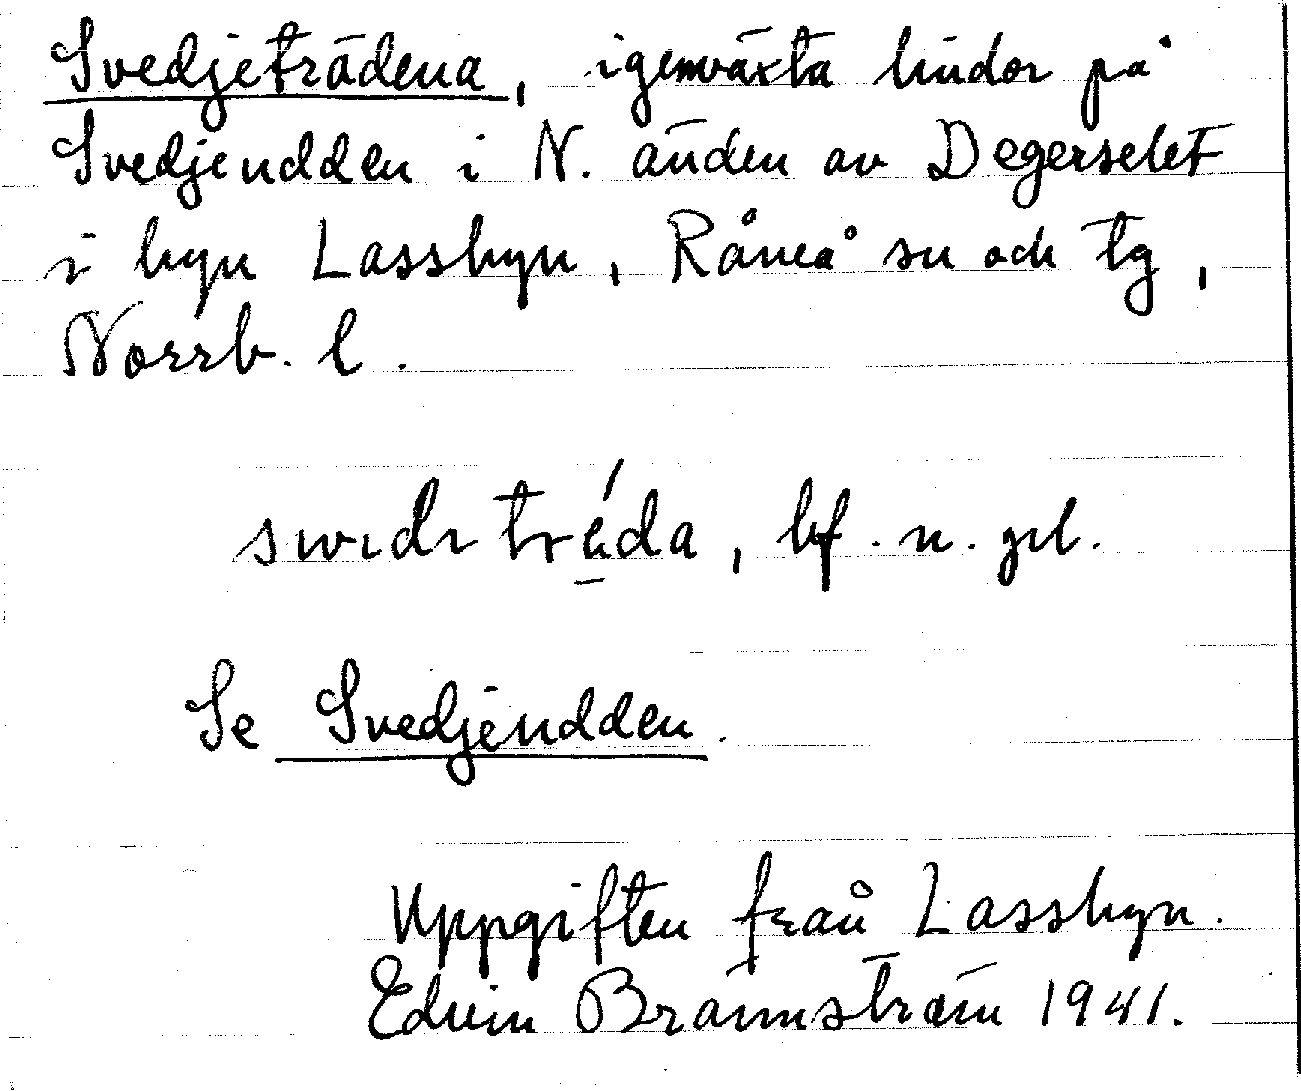 Svedjeträdena, igenväxta lindor på
Svedjeudden i N. änden av Degerselet
i byn Lassbyn, Råneå sn och tg,
Norrb. l.
bf. n. pl.
Se Svedjeudden.
Uppgiften från Lassbyn.
Edvin Brännström 1941.